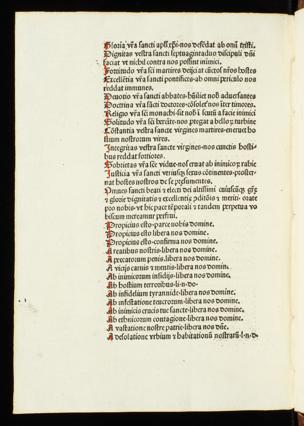 Gloria vr̄a sancti apl̄i xp̄i·nos defēdat ab om̄i tristi.
Dignitas vestra sancti septuagintaduo discipuli dn̄i
faciat vt nichil contra nos possint inimici.
Fortitudo vr̄a sc̄i martires deijciat cūctos nr̄os hostes
Excellētia vr̄a sancti pontifices·ab omni periculo nos
reddat immunes.
Deuotio vr̄a sancti abbates·hūiliet nob̄ aduersantes
Doctrina vr̄a sācti doctores·cōsolet̄ nos īter timores.
Religio vr̄a sc̄i monachi·sit nob̄ scutū a facie inimici
Solitudo vr̄a sc̄i
Cōstantia vestra sancte virgines martires·eruat ho
stium nostrorum vires.
Integritas vestra sancte virgines·nos cunctis hosti
bus reddat fortiores.
Sobrietas vr̄a sc̄e vidue·nos eruat ab inimicoꝝ rabie
Iusticia vr̄a sancti vtriusqꝫ sexus cōtinentes·proster
nat hostes nostros de se presumentes.
Omnes sancti beati et electi dei altissimi cuiuscūqꝫ
⁊ glorie dignitatis ⁊ excellentie·pditi ⁊ meriti·orate
pro nobis·vt hic pace tēporali ⁊ tandem perpetua vo
biscum mereamur perfrui.
Propicius esto·parce nobis domine.
Propicius esto·libera nos domine.
Propicius esto·confirma nos domine.
A reatibus nostris·libera nos domine.
A peccatorum penis·libera nos domine.
A vicijs carnis ⁊ mentis·libera nos domine.
Ab inimicorum insidijs·libera nos domine.
Ab hostium terroribus·l·n·do·
Ab infidelium tyrannide·libera nos domine.
Ab infestatione teucrorum·libera nos domine.
Ab inimicis crucis tue sancte·libera nos domine.
Ab ethnicorum contagione·libera nos domine.
A vastatione nostre patrie·libera nos dn̄e.
A desolatione vrbium ⁊ habitationū nostraꝝ·l·n·d·